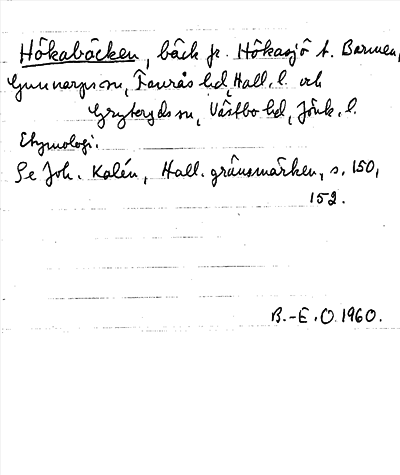 Hökabäcken, bäck fr. Hökasjö t. Barmen,
Gunnarps sn, Faurås hd, Hall. l. och
Gryteryds sn, Västbo hd, Jönk. l.
Etymologi.
Se Joh. Kalén, Hall. gränsmärken, s. 150,
152.
B.-E.O. 1960.